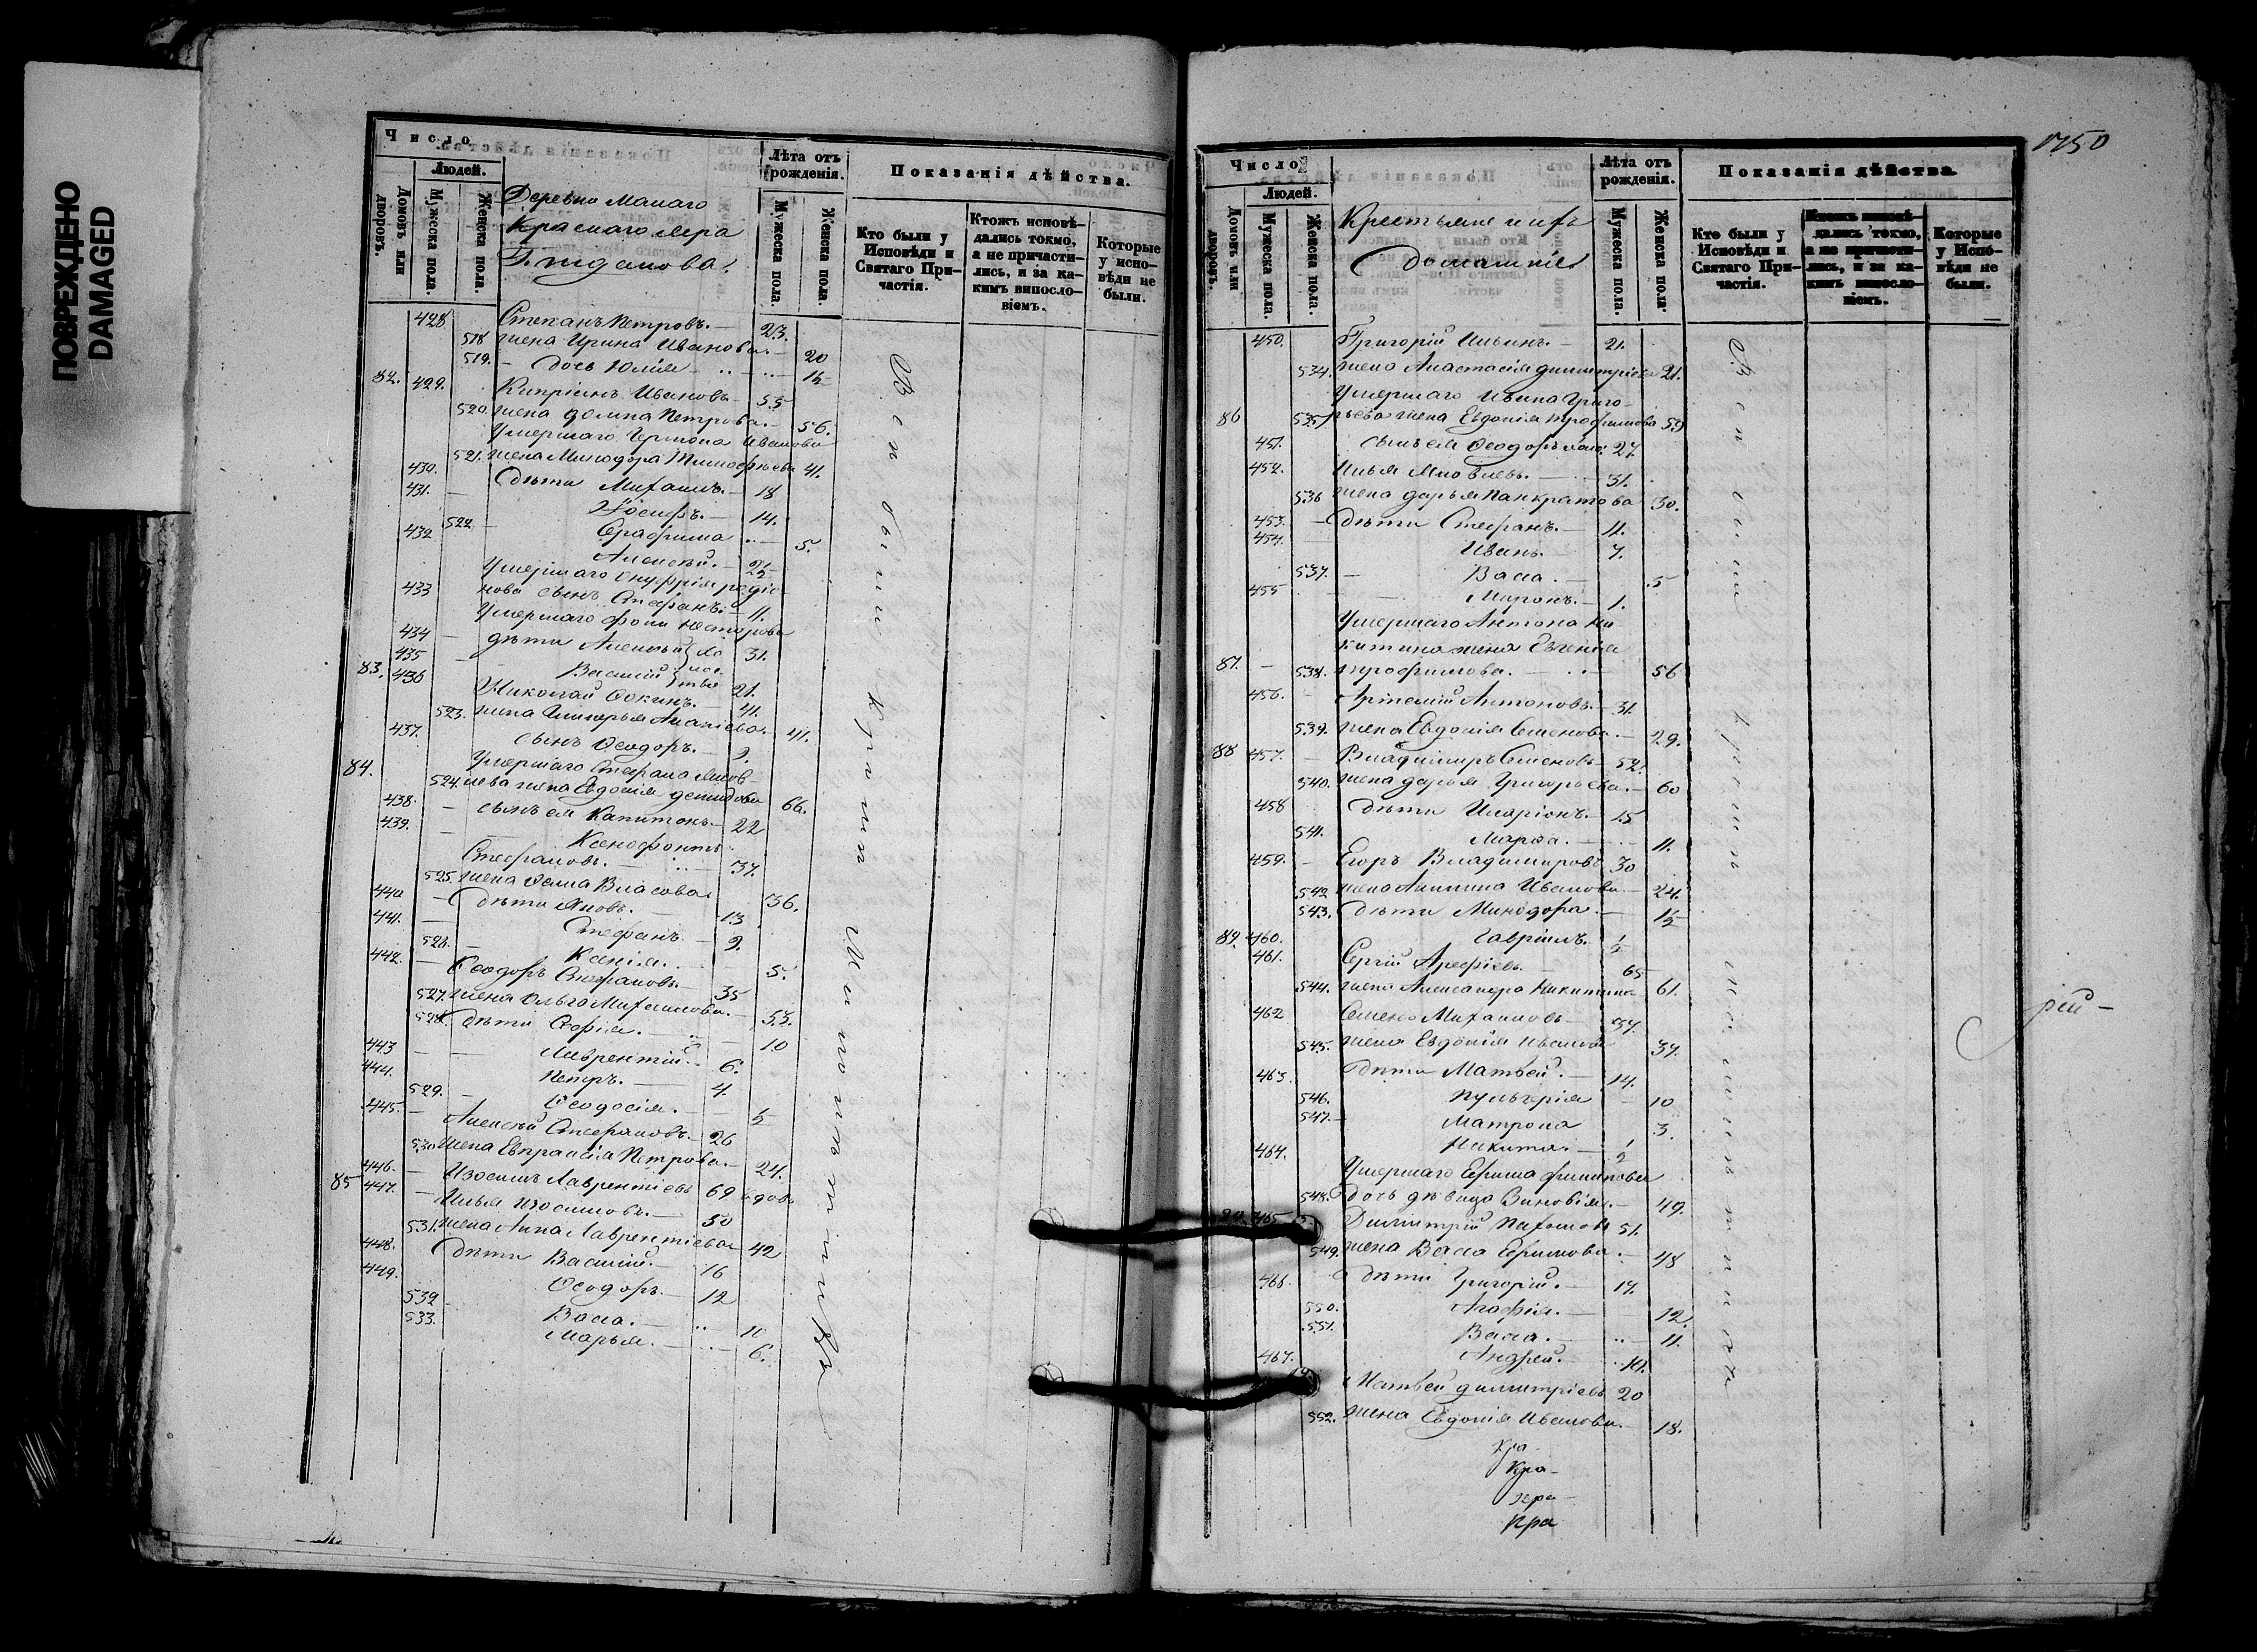 ПОВРЕЖДЕНО
DAMAGED
Число
Людей.
Домовъ или дворовъ.
Мужеска пола.
Женска пола.
Деревни Малаго
Краснаго Яра
Г. Жданова.
Лѣта отъ рожденія.
Мужеска пола.
Женска пола.
Показанія дѣйства.
Кто были у Исповѣди и Святаго Причастія.
Ктожъ исповѣдались токмо, а не причастились, и за какимъ винословіемъ.
Которые у исповѣди не были.
428 Степанъ Петровъ. 23.
518 жена Ирина Иванова. 20
519. дочь Юлія ½
82. 429. Кипріанъ Ивановъ 55
520. жена Домна Петрова. 56.
Умершаго Иванова
521. жена Минодора Тимофѣева 41.
430. дѣти Михаилъ. 18
431. Іосифъ. 14.
522. Серафима 5.
432 Алексѣй. 25
Умершаго Онуфрія Родіо
433 нова сынъ Стефанъ. 11.
Умершаго Фомы Нестерова
434 дѣти Алексѣй 31.
435 Василій 21.
холостые
83. 436 Николай Фокинъ. 41.
523. жена Гликерья Ананьева. 41.
437. сынъ Ѳеодоръ. 9.
84. Умершаго Стефана Яков-
524. лева жена Евдокія Демидова 66.
438. сынъ ея Капитонъ. 22
439. Ксенофонтъ
Стефановъ. 37.
525. жена Ѳекла Власова 36.
440 дѣти Яковъ. 13
441. Стефанъ. 9.
526. Ксенія. 5.
442. Ѳеодоръ Стефановъ. 35
527. жена Ольга Михаилова. 33.
528. дѣти Софія. 10
443 Лаврентій. 6.
444. Петръ. 4.
529. Ѳеодосія. ½
445. Алексѣй Стефановъ. 26
530 жена Евпраксія Петрова. 24.
85 446. Изосимъ Лаврентіевъ 69 вдовъ
447. Илья Изосимовъ. 50
531. жена Анна Лаврентіева 42
448. дѣти Василій. 16
449. Ѳеодоръ. 12
532 Васса. 10
533. Марья. 6.
Всѣ были кромѣ малолѣтнихъ
1750
Число
Людей.
Домовъ или дворовъ.
Мужеска пола.
Женска пола.
Крестьяне и ихъ
домашніе
Лѣта отъ рожденія.
Мужеска пола.
Женска пола.
Показанія дѣйства.
Кто были у Исповѣди и Святаго Причастія.
Ктожъ исповѣдались токмо, а не причастились, и за какимъ винословіемъ.
Которые у Исповѣди не были.
450. Григорій Ильинъ. 21.
534. жена Анастасія Димитріева 21.
Умершаго Ивана Григо-
86 535 рьева жена Евдокія Трофимова 59
451. сынъ ея Ѳеодоръ холос. 27.
452. Илья Яковлевъ. 31.
536 жена Дарья Панкратова 30.
453. дѣти Стефанъ. 11.
454. Иванъ. 7.
537. Васса. 5
455 Миронъ. 1.
Умершаго Антона Ни
китина жена Евгенія
87. 538. Трофимова. 56
456. Артемій Антоновъ. 31.
539. жена Евдокія Семенова. 29.
88 457. Владиміръ Семеновъ 52.
540. жена Дарья Григорьева. 60
458 дѣти Иларіонъ. 15
541. Марѳа. 11.
459. Егоръ Владиміровъ 30
542 жена Акилина Иванова. 24.
543. дѣти Минодора. ½
89. 460. Гавріилъ. ½
461. Сергій Арефіевъ. 65
544. жена Александра Никитина 61.
462 Семенъ Михаиловъ 37.
545. жена Евдокія Иванова 37.
463. дѣти Матвей. 14.
546. Пульхерія 10
547. Матрона 3.
464. Никита. ½
Умершаго Ефима Филипова
548. дочь дѣвица Зиновія. 49.
90. 465 Димитрій Пахомовъ 51.
549. жена Васса Ефимова. 48
466. дѣти Григорій. 17.
550. Агафія. 12.
551. Васса. 11.
467. Андрей. 10.
Матвей Димитріевъ 20
552. жена Евдокія Иванова. 18.
Кра-
Кра-
Кра
Всѣ были кромѣ малолѣтнихъ
рей-